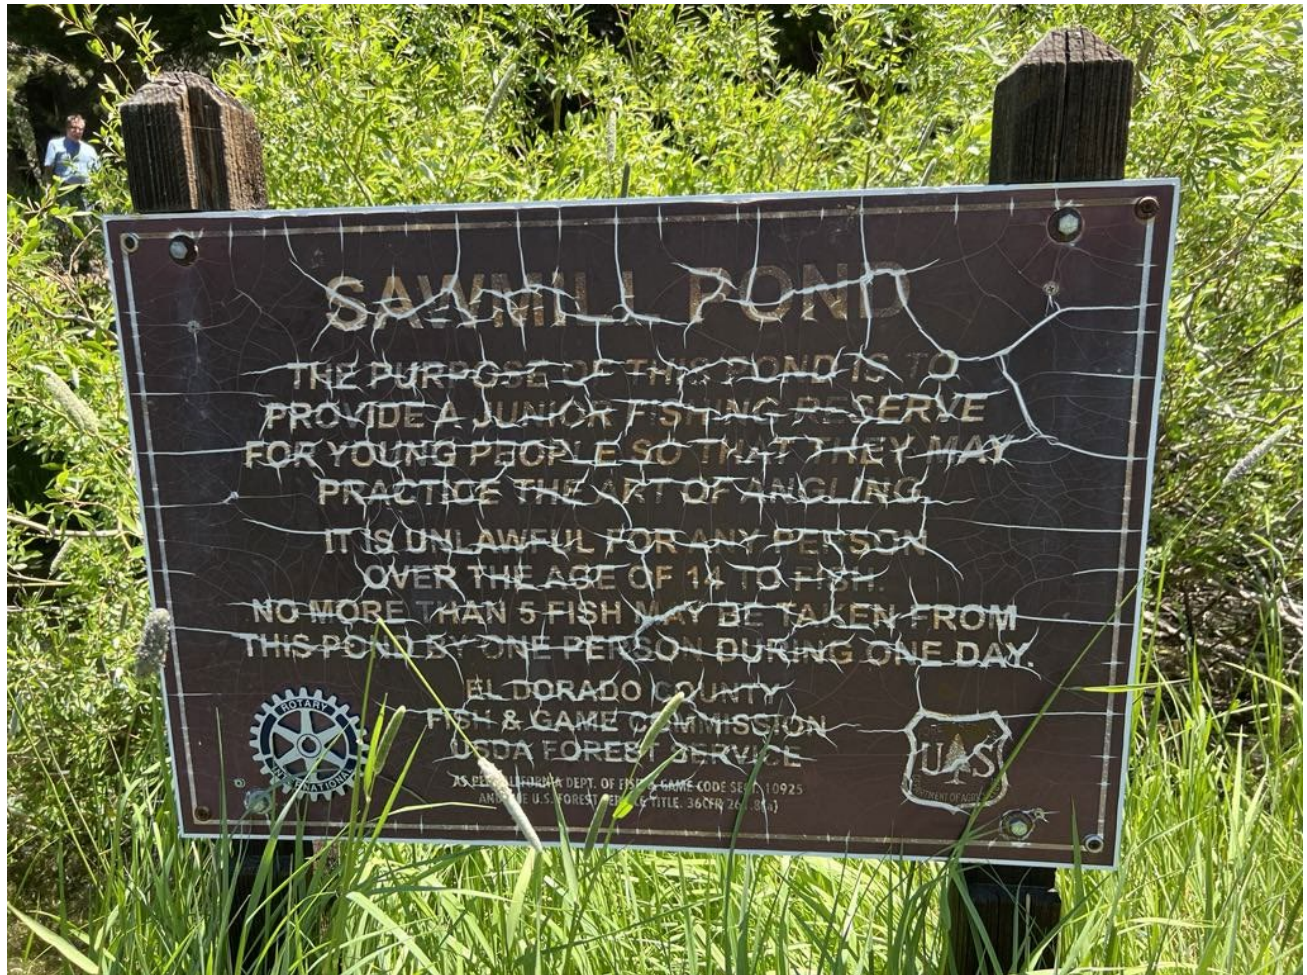 SAWMILL POND
THE PURPOSE OF THIS POND IS TO
PROVIDE A JUNIOR FISHING RESERVE
FOR YOUNG PEOPLE SO THAT THEY MAY
PRACTICE THE ART OF ANGLING.
IT IS UNLAWFUL FOR ANY PERSON
OVER THE AGE OF 14 TO FISH.
NO MORE THAN 5 FISH MAY BE TAKEN FROM
THIS POND BY ONE PERSON DURING ONE DAY.
EL DORADO COUNTY
FISH & GAME COMMISSION
USDA FOREST SERVICE
AS PER CALIFORNIA DEPT. OF FISH & GAME CODE SECT. 10925
AND THE U.S. FOREST SERVICE TITLE. 36CFR
ROTARY
INTERNATIONAL
U S
DEPARTMENT OF AGRICULTURE